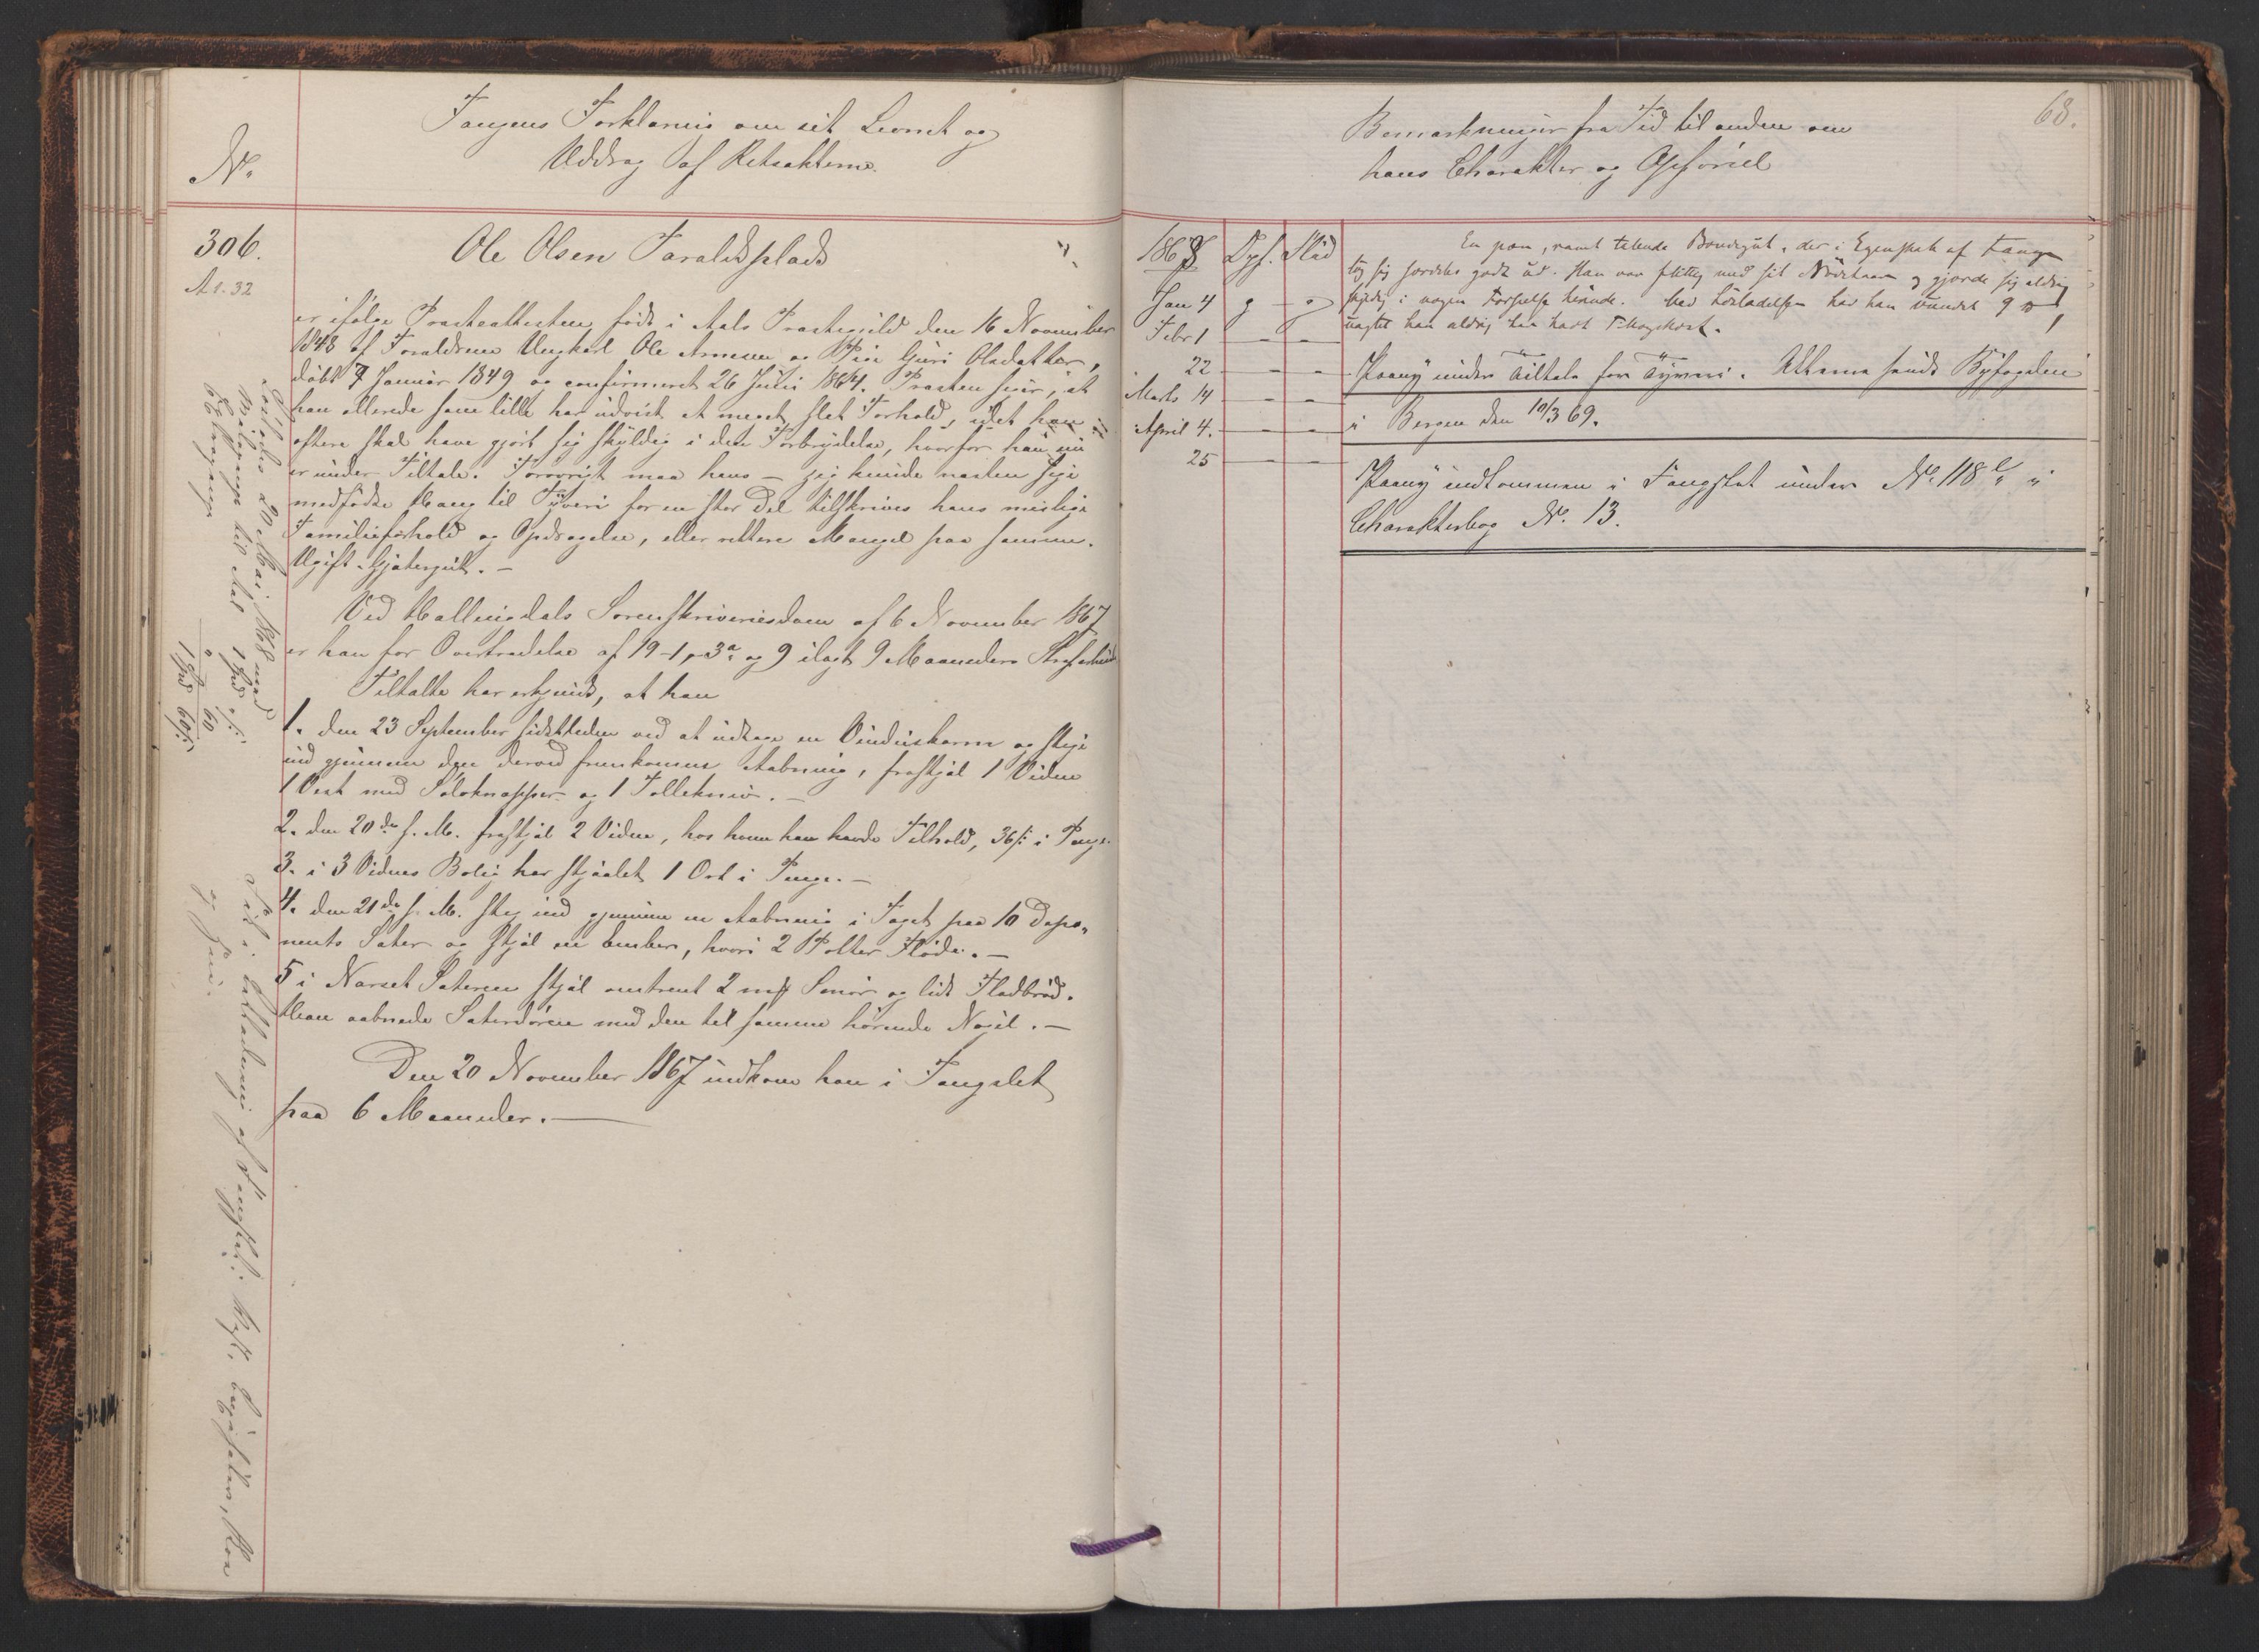 Fangens Forklaring om sit Levnet og
Uddrag af Retsakterne.
No.
306.
A 1. 32
Ole Olsen Taraldsplads
er ifølge Præsteattesten født i Aals Præstegjeld den 16 November
1848 af Forældrene Ungkarl Ole Arnesen og Pige Guri Olsdatter,
døbt 7 Januar 1849 og confirmeret 26 Juni 1864. Præsten siger, at
han allerede som lille har udvist et meget slet Forhold, idet han
oftere skal have gjort sig skyldig i den Forbrydelse, hvorfor han nu
er under Tiltale. Forøvrigt maa hans – jeg kunde næsten sige
medfødte Hang til Tyveri for en stor Del tilskrives hans mislige
Familieforhold og Opdragelse, eller rettere Mangel paa samme.
Ugift Gjætergut. –
Ved Hallingdals Sorenskriveriesdom af 6 November 1867
er han for Overtrædelse af 19-1, 3a og 9 ilagt 9 Maaneders Strafarbeide
Tiltalte har erkjendt, at han
1. den 23 September sidstleden ved at udtage en Vindueskarm og stige
ind gjennem den derved fremkomne Aabning, frastjal 1 Vidne
1 Vest med Sølvknapper og 1 Tollekniv. –
2. den 20de s. M. frastjal 2 Vidne, hos hvem han havde Tilhold, 36 s: i Penge
3. i 3 Vidnes Bolig har stjaalet 1 Ort i Penge. –
4. den 21de s. M. steg ind gjennem en Aabning i Taget paa 10 Depo„
nents Sæter og stjal en Ember, hvori 2 Potter Fløde. –
5 i Narset Sæteren stjal omtrent 2 mrk Smør og lidt Fladbrød.
Han aabnede Sæterdøren med den til samme hørende Nøgel. –
Den 20 November 1867 indkom han i Fangslet
paa 6 Maaneder. –
Løslades 20 Mai 1868 med
Reisepenge til Aal 1 Spd s:
60
1 Spd 60 s:
68.
Bemærkninger fra Tid til anden om
hans Charakter og Opførsel
1868 Opf. Flid
Jan 4 g g
Febr 1 – –
22 – –
Marts 14 – –
April 4. – –
25 – –
En pæn, vant talende Bondegut, der i Egenskab af Fange
tog sig særdeles godt ud. Han var flittig med sit og gjorde sig aldrig
skyldig i nogen Forseelse herinde. Ved Løsladelsen har han vundet 9
uagtet han aldrig har havt
Paany under Tiltale for Tyveri. Akterne sendt Byfogden
i Bergen den 10/3 69.
Paany indkommen i Fangslet under No. 118 i
Charakterbog No. 13.